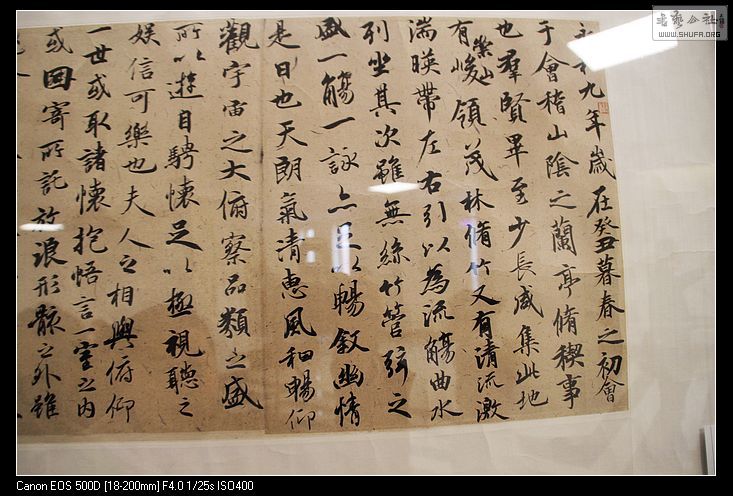 永和九年歲在癸丑暮春之初會
于會稽山陰之蘭亭脩稧事
也羣賢畢至少長咸集此地
有崇山峻領茂林脩竹又有清流激
湍暎帶左右引以為流觴曲水
列坐其次雖無絲竹管弦之
盛一觴一詠亦足以暢敘幽情
是日也天朗氣清惠風和暢仰
觀宇宙之大俯察品類之盛
所以遊目騁懷足以極視聽之
娛信可樂也夫人之相與俯仰
一世或取諸懷抱悟言一室之內
或因寄所託放浪形骸之外雖
書藝公社
WWW.SHUFA.ORG
Canon EOS 500D [18-200mm] F4.0 1/25s ISO400